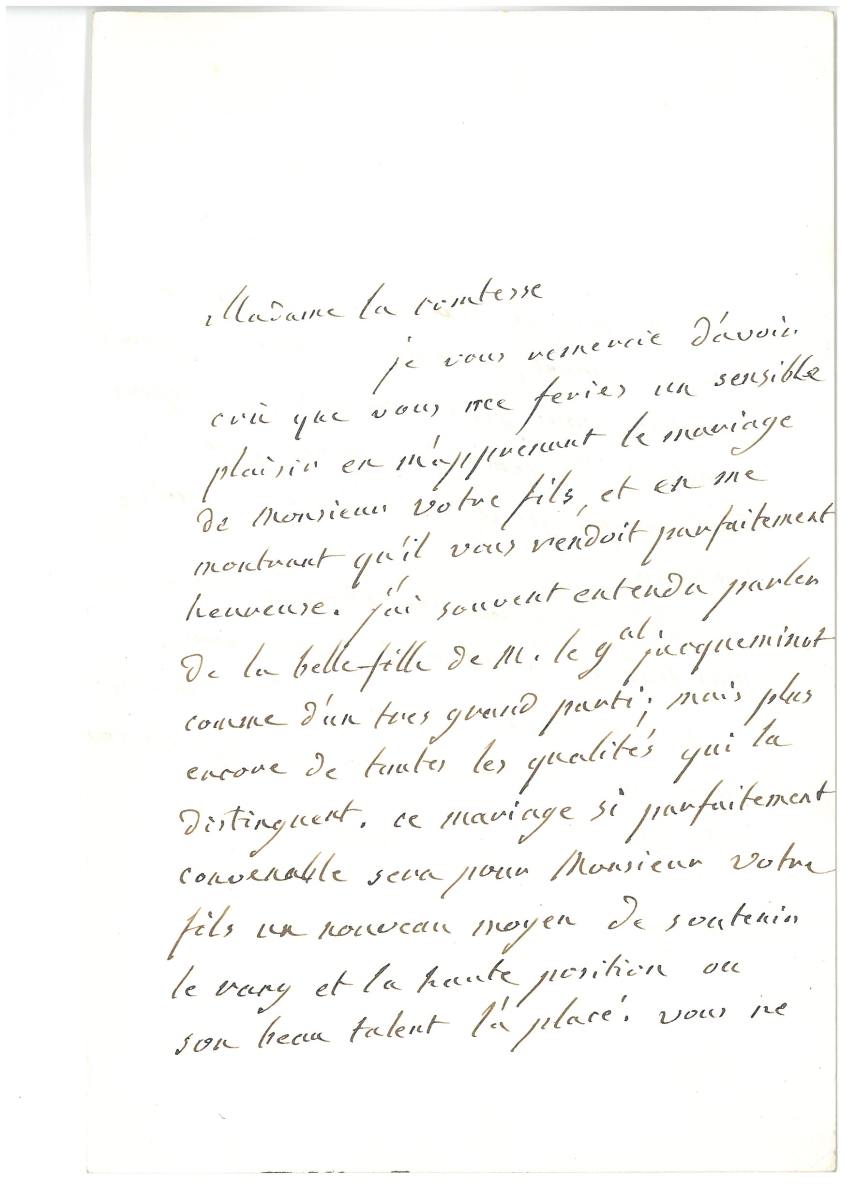 Madame la comtesse
je vous remercie d'avoir
crû que vous me feries un sensible
plaisir en m'apprenant le mariage
de Monsieur votre fils, et en me
montrant qu'il vous rendoit parfaitement
heureuse. j'ai souvent entendu parler
de la belle-fille de M. le gal jacqueminot
comme d'un tres grand parti; mais plus
encore de toutes les qualités qui la
distinguent. ce mariage si parfaitement
convenable sera pour Monsieur votre
fils un nouveau moyen de soutenir
le rang et la haute position ou
son beau talent l'a placé. vous ne